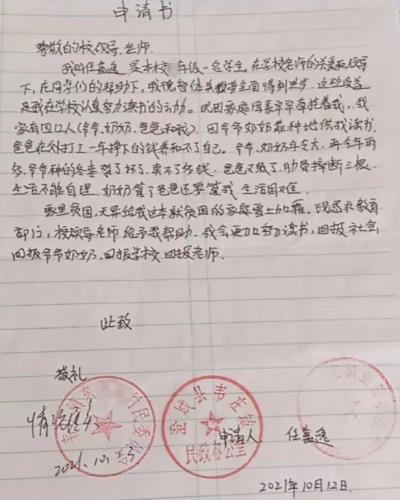 申请书
尊敬的校领导、老师
我叫任孟逸 是本校 年级一名学生,在学校老师的关爱和领导
下,在同学们的帮助下,我德智体美都等全面得到进步
是我在学校认真努力读书的 因家庭因素早早
家有四口人(爷爷、奶奶、爸爸和我)因爷爷奶奶靠种地供我读书
爸爸在外打工一年挣下的钱养不了自己。爷爷、奶奶年令大,再今年雨
多,爷爷种的冬枣裂了坏了,卖不了多钱,爸爸又 了,肋骨摔断三根
生活不能自理,奶奶管了爸爸还要管我 生活困难
家里贫困,无异给我这本就贫困的家庭雪上加霜。现恳求教育
部门,校领导老师给予我帮助。我会更加努力读书,回报社会,
回报爷爷奶奶,回报学校 回报老师。
此致
敬礼
情况属实
2021.10.13
村民委员会
澄城县韦庄镇
民政办公室
申请人 任孟逸
2021年10月12日